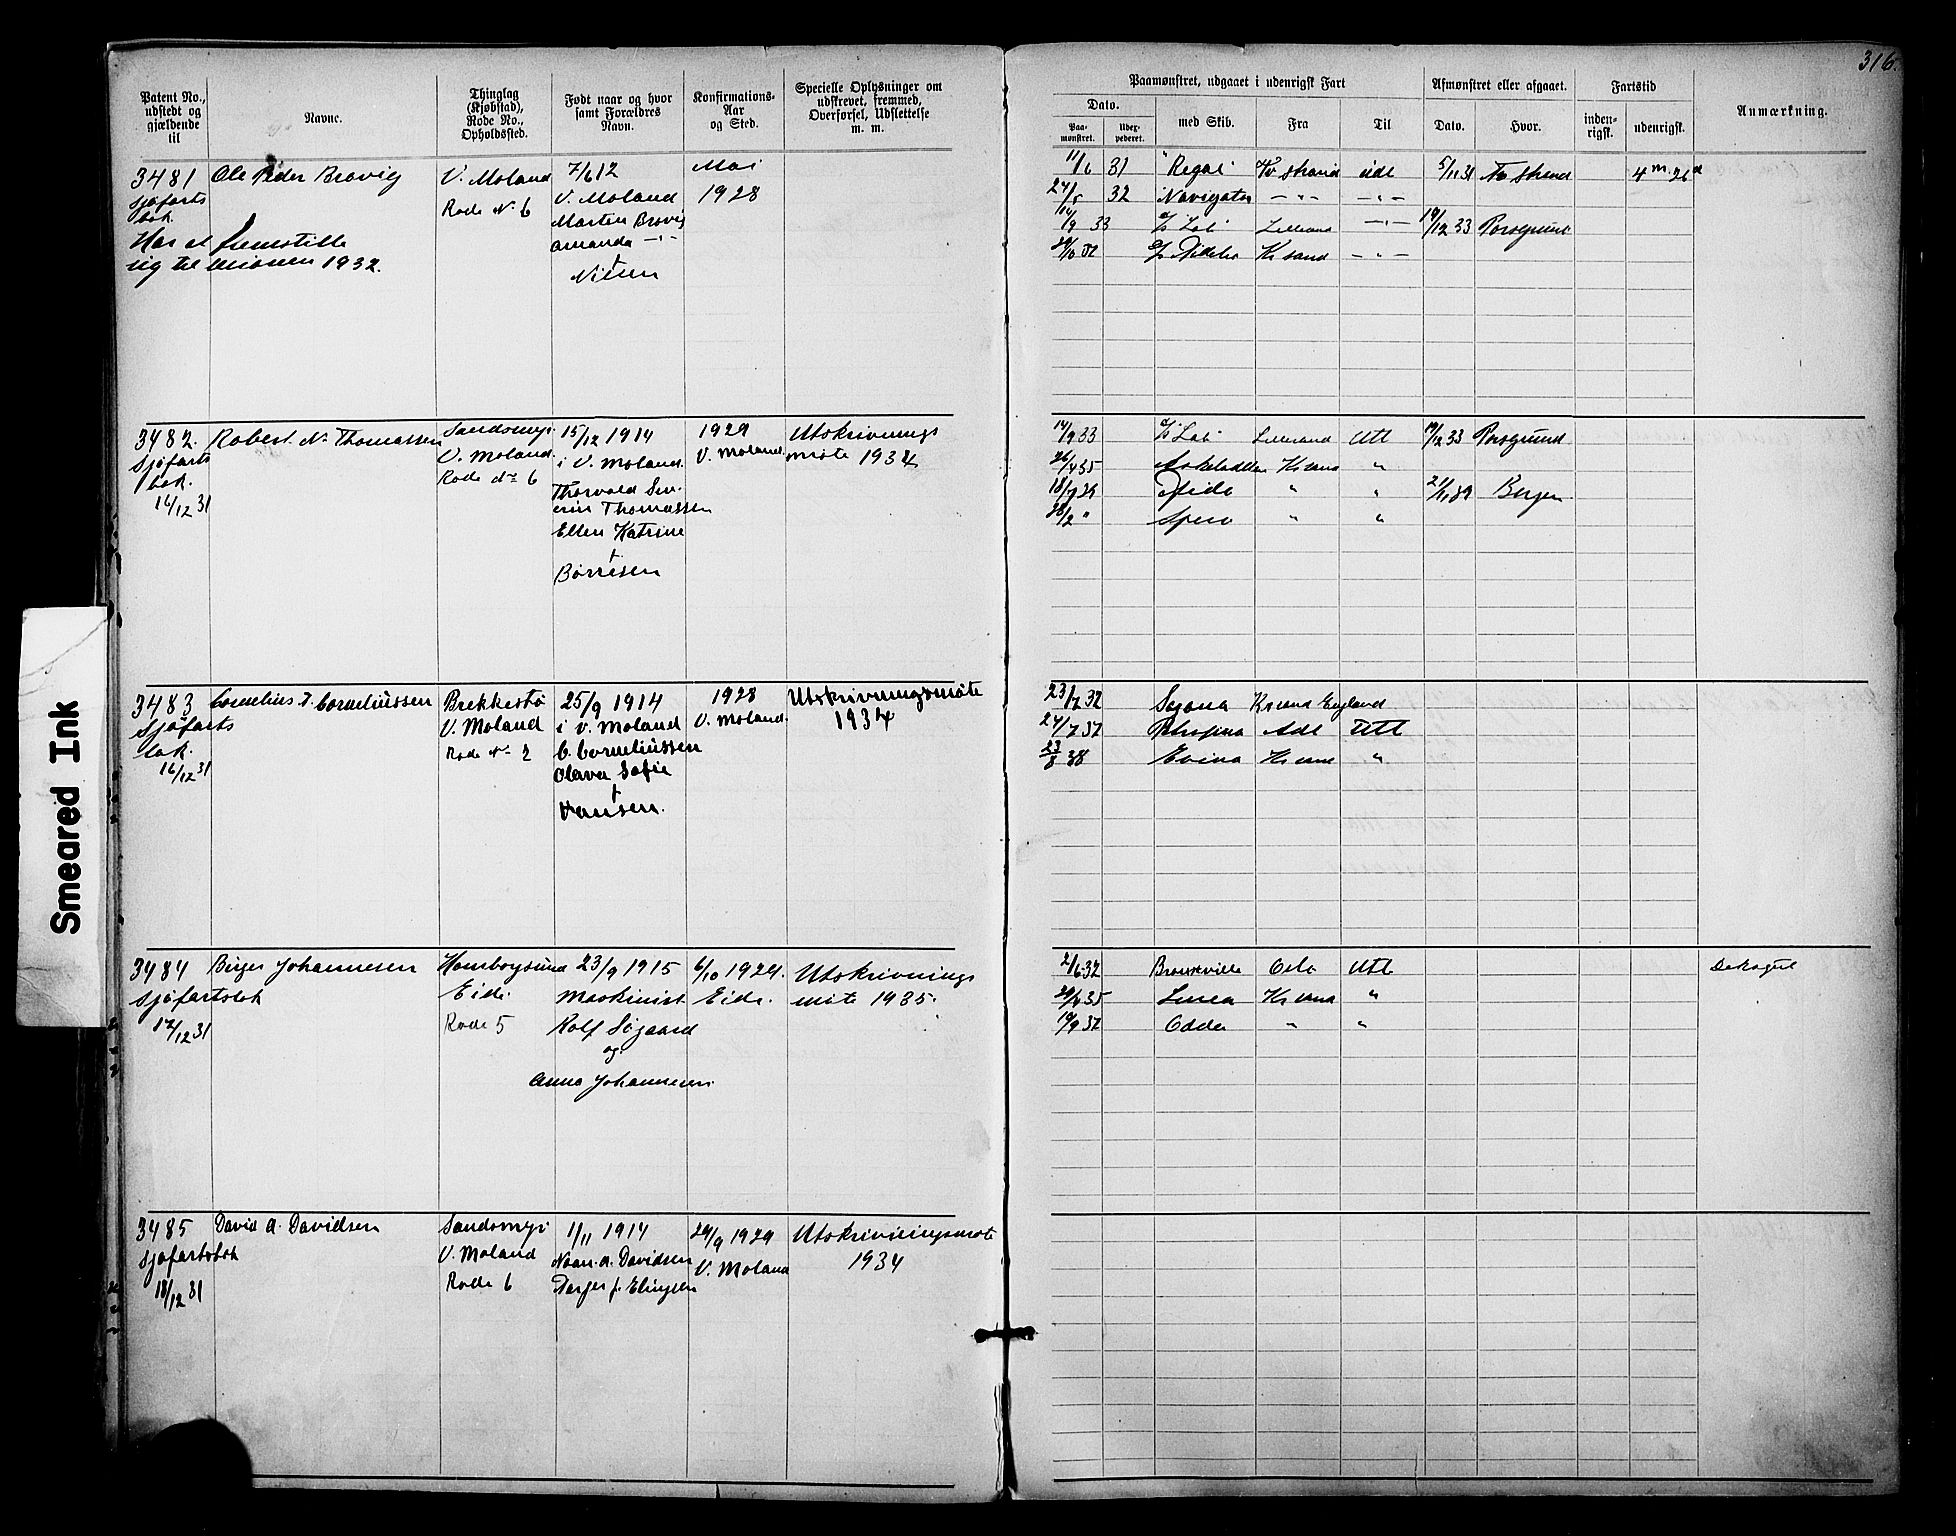 316.
Patent No., udstedt og gjældende til
Navne.
Thinglag (Kjøbstad), Rode No., Opholdssted.
Født naar og hvor samt Forældres Navn.
Konfirmations-Aar og Sted.
Specielle Oplysninger om udskrevet, fremmed, Overførsel, Udslettelse m. m.
Paamønstret, udgaaet i udenrigsk Fart
Dato.
Paamønstret.
Udexpederet.
med Skib.
Fra
Til
Afmønstret eller afgaaet.
Dato.
Hvor.
Fartstid
indenrigsk.
udenrigsk.
Anmærkning.
3481
Sjøfartsbok.
Har at fremstille
sig til 1932.
Ole Peder Brovig
V. Moland
Rode No 6
7/6 12
V. Moland
Marten Brovig
Amanda -"-
f
Nilsen
Mai
1928
11/6 31 "Regal" Kr strand udl 5/11 31 Kr strand 4 m. 26 d
24/5 32 Navigator -"- -"-
14/9 33 D/S Lab Lillesand -"- 19/12 33 Porsgrund
Kr sand -"-
3482.
Sjøfarts
bok.
16/12 31
Robert N. Thomassen
Sandsmyr
V. Moland.
Rode No 6
15/12 1914
i V. Moland.
Thorvald Severin Thomassen
Ellen Katrine
f
Børresen
1929
V. Moland.
Utskrivnings
møte 1934
14/9 33 D/S Lab Lillesand Utl 19/12 33 Porsgrund
26/4 35 Askeladden Kr sand "
" " Bergen
28/2 " Spero " "
3483
Sjøfarts
bok.
16/12 31
Cornelius T. Corneliussen
Brekkestø
V. Moland
Rode No 2
25/9 1914
i V. Moland
C. Corneliussen
Olava Sofie
f
Hansen.
1928
V. Moland.
Utskrivningsmøte
1934
23/7 32 Sagona Kr sand England
24/7 37 Adl Utl
23/8 38 Evina Kr sand "
3484
Sjøfartsbok
17/12 31
Birger Johannesen
Homborgsund
Eide.
Rode 5
23/9 1915
Maskinist
Rolf Søgaard
og
Anna Johannesen.
6/10 1929.
Eide.
Utskrivnings
møte 1935.
2/6 32 Bronxville Oslo Utl
Linea Kr sand "
19/9 37 Odda " "
3485
Sjøfartsbok
18/12 31
David A. Davidsen
Sandsmyr
V. Moland
Rode 6
11/11 1914
Noan. A. Davidsen
Targer f. Elingsen
29/9 1929
V. Moland
Utskrivningsmøte
1934
Smeared Ink